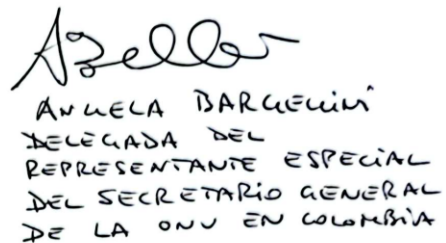 ANGELA BARGELLINI
DELEGADA DEL
REPRESENTANTE ESPECIAL
DEL SECRETARIO GENERAL
DE LA ONU EN COLOMBIA